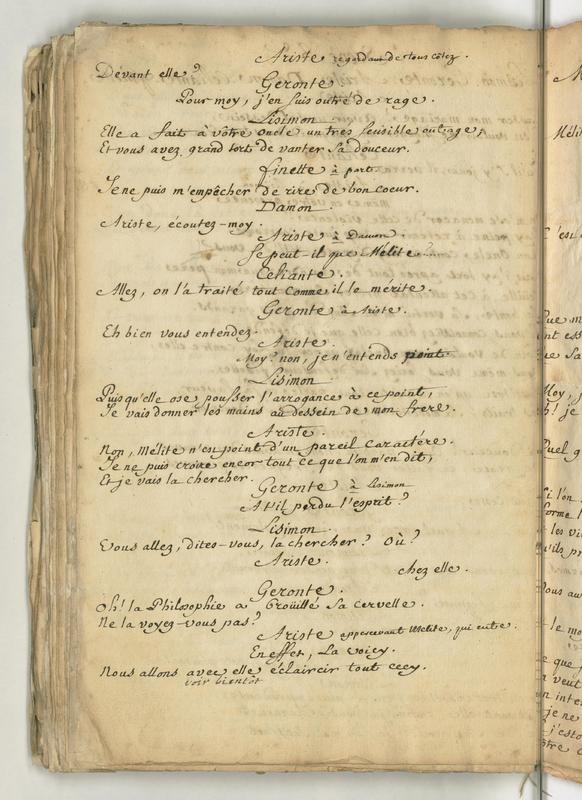 Ariste regardant de tous côtez.
Devant elle?
Geronte
Pour moy, j'en suis outré de rage.
Lisimon
Elle a fait à vôtre oncle un tres sensible outrage;
Et vous avez grand tort de vanter sa douceur.
finette à part.
Je ne puis m'empêcher de rire de bon coeur.
Damon
Ariste, écoutez-moy.
Ariste à Damon
Se peut-il que Mélite....
Celiante.
Allez, on l'a traité tout comme il le mérite.
Geronte à Ariste.
Eh bien vous entendez.
Ariste.
Moy? non, je n'entends point
Lisimon
Puisqu'elle ose pousser l'arrogance à ce point,
Je vais donner les mains au dessein de mon frere.
Ariste.
Non, Mélite n'est point d'un pareil caractére.
Je ne puis croire encor tout ce que l'on m'en dit,
Et je vais la chercher.
Geronte à Lisimon
At'il perdu l'esprit?
Lisimon
Vous allez, dites-vous, la chercher? Où?
Ariste.
chez elle.
Geronte.
Oh! la Philosophie a brouillé sa cervelle.
Ne la voyez-vous pas?
Ariste appercevant Mélite, qui entre.
En effet, La voicy.
Nous allons avec elle éclaircir tout cecy.
voir bientôt